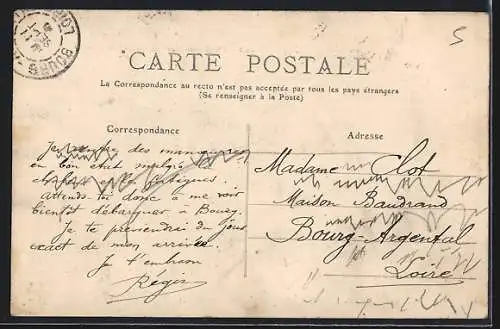 CARTE POSTALE
La Correspondance au recto n'est pas acceptée par tous les pays étrangers
(Se renseigner à la Poste)
Correspondance
Je rentre des manœuvres
en bon état malgré les
et les fatigues.
attends tu donc à me voir
bientôt débarquer à Bourg.
Je te préviendrai du jour
exact de mon arrivée.
Je t'embrasse
Régis
Adresse
Madame Clot
Maison Baudrand
Bourg-Argental
Loire
5
BOURG
LOIRE